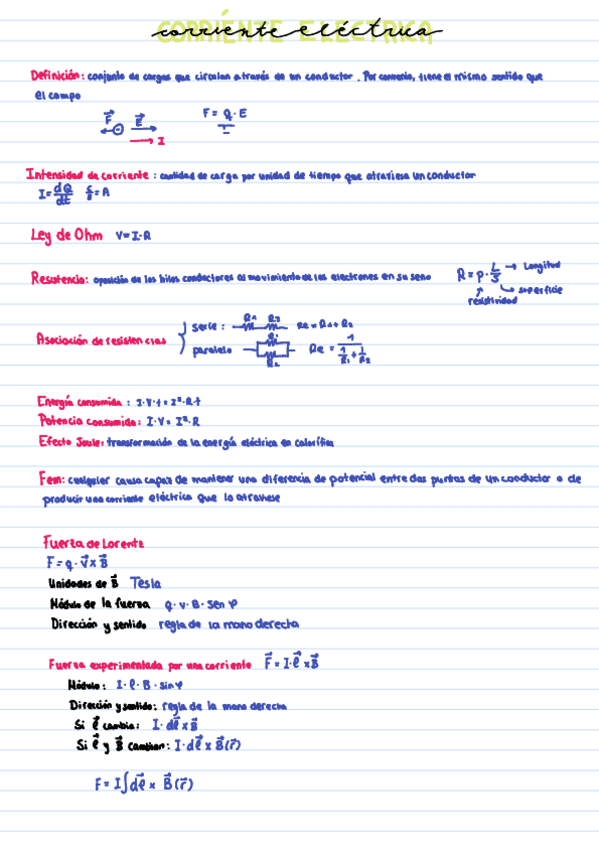 CORRIENTE ELÉCTRICA
corriente eléctrica
Definición: conjunto de cargas que circulan a través de un conductor. Por convenio, tiene el mismo sentido que
el campo
F⃗ E⃗ F = q · E
I
Intensidad de corriente: cantidad de carga por unidad de tiempo que atraviesa un conductor
I = dQ/dt C/s = A
Ley de Ohm V = I · R
Resistencia: oposición de los hilos conductores al movimiento de los electrones en su seno R = ρ · L/S → Longitud
superficie
resistividad
Asociación de resistencias
serie: R1 R2 Re = R1 + R2
paralelo R1 R2 Re = 1/(1/R1 + 1/R2)
Energía consumida: I · V · t = I² · R · t
Potencia consumida: I · V = I² · R
Efecto Joule: transformación de la energía eléctrica en calorífica
Fem: cualquier causa capaz de mantener una diferencia de potencial entre dos puntos de un conductor o de
producir una corriente eléctrica que lo atraviese
Fuerza de Lorentz
F = q · v⃗ x B⃗
Unidades de B⃗ Tesla
Módulo de la fuerza q · v · B · sen φ
Dirección y sentido regla de la mano derecha
Fuerza experimentada por una corriente F⃗ = I · ℓ⃗ x B⃗
Módulo: I · ℓ · B · sin φ
Dirección y sentido: regla de la mano derecha
Si ℓ⃗ cambia: I · dℓ⃗ x B⃗
Si ℓ⃗ y B⃗ cambian: I · dℓ⃗ x B⃗(r⃗)
F = I∫dℓ⃗ x B⃗(r⃗)